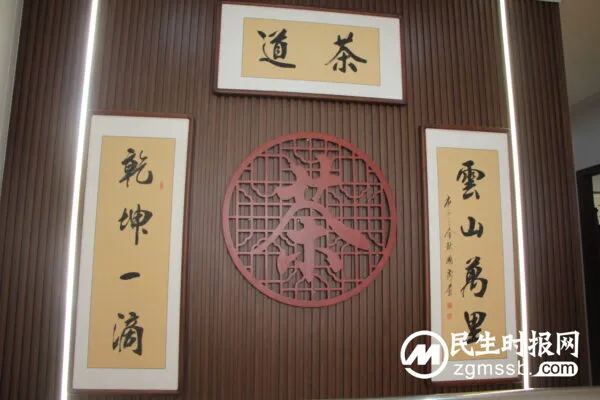 茶道
雲山萬里
茶
乾坤一滴
民生时报网
zgmssb.com